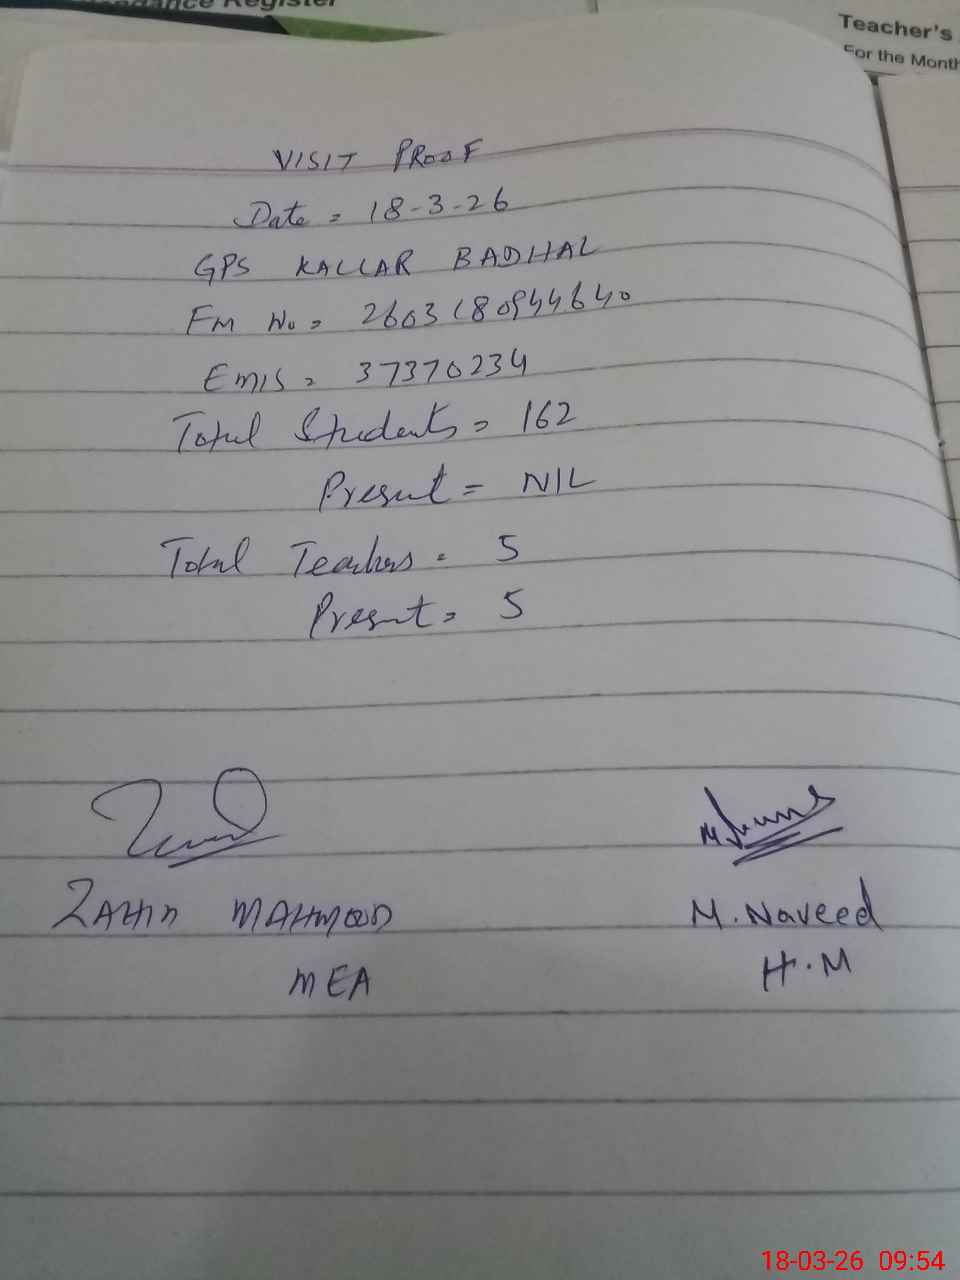 Attendance Register
Teacher's
For the Month
VISIT PROOF
Date = 18-3-26
GPS KALLAR BADHAL
Fm No = 2603180944640
Emis = 37370234
Total Students = 162
Present = NIL
Total Teachers = 5
Present = 5
ZAHID MAHMOOD
M. Naveed
MEA
H.M
18-03-26 09:54